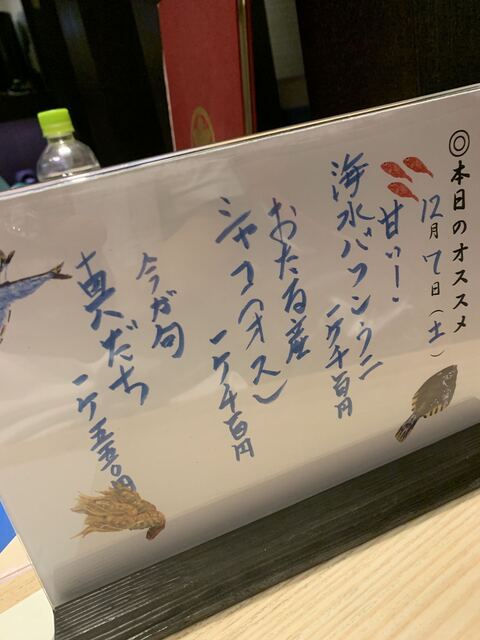 ◎本日のオススメ
12月7日(土)
甘い!
海水バフンウニ
一ケ千百円
おたる産
シャコ(オス)
一ケ千百円
今が旬
真だち
一ケ五五〇円